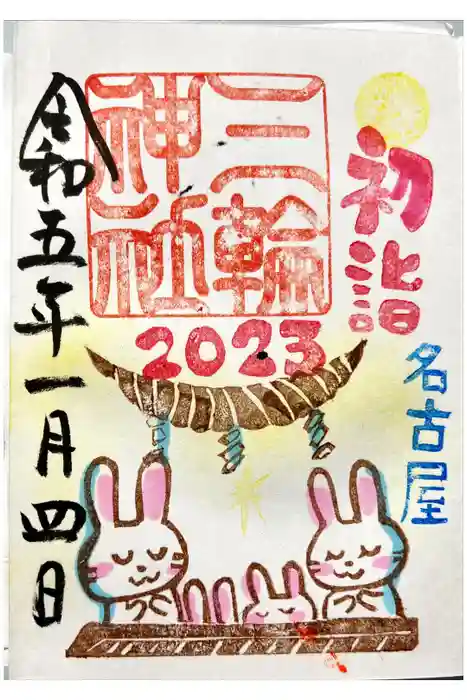 初詣
名古屋
三輪
神社
2023
令和五年一月四日